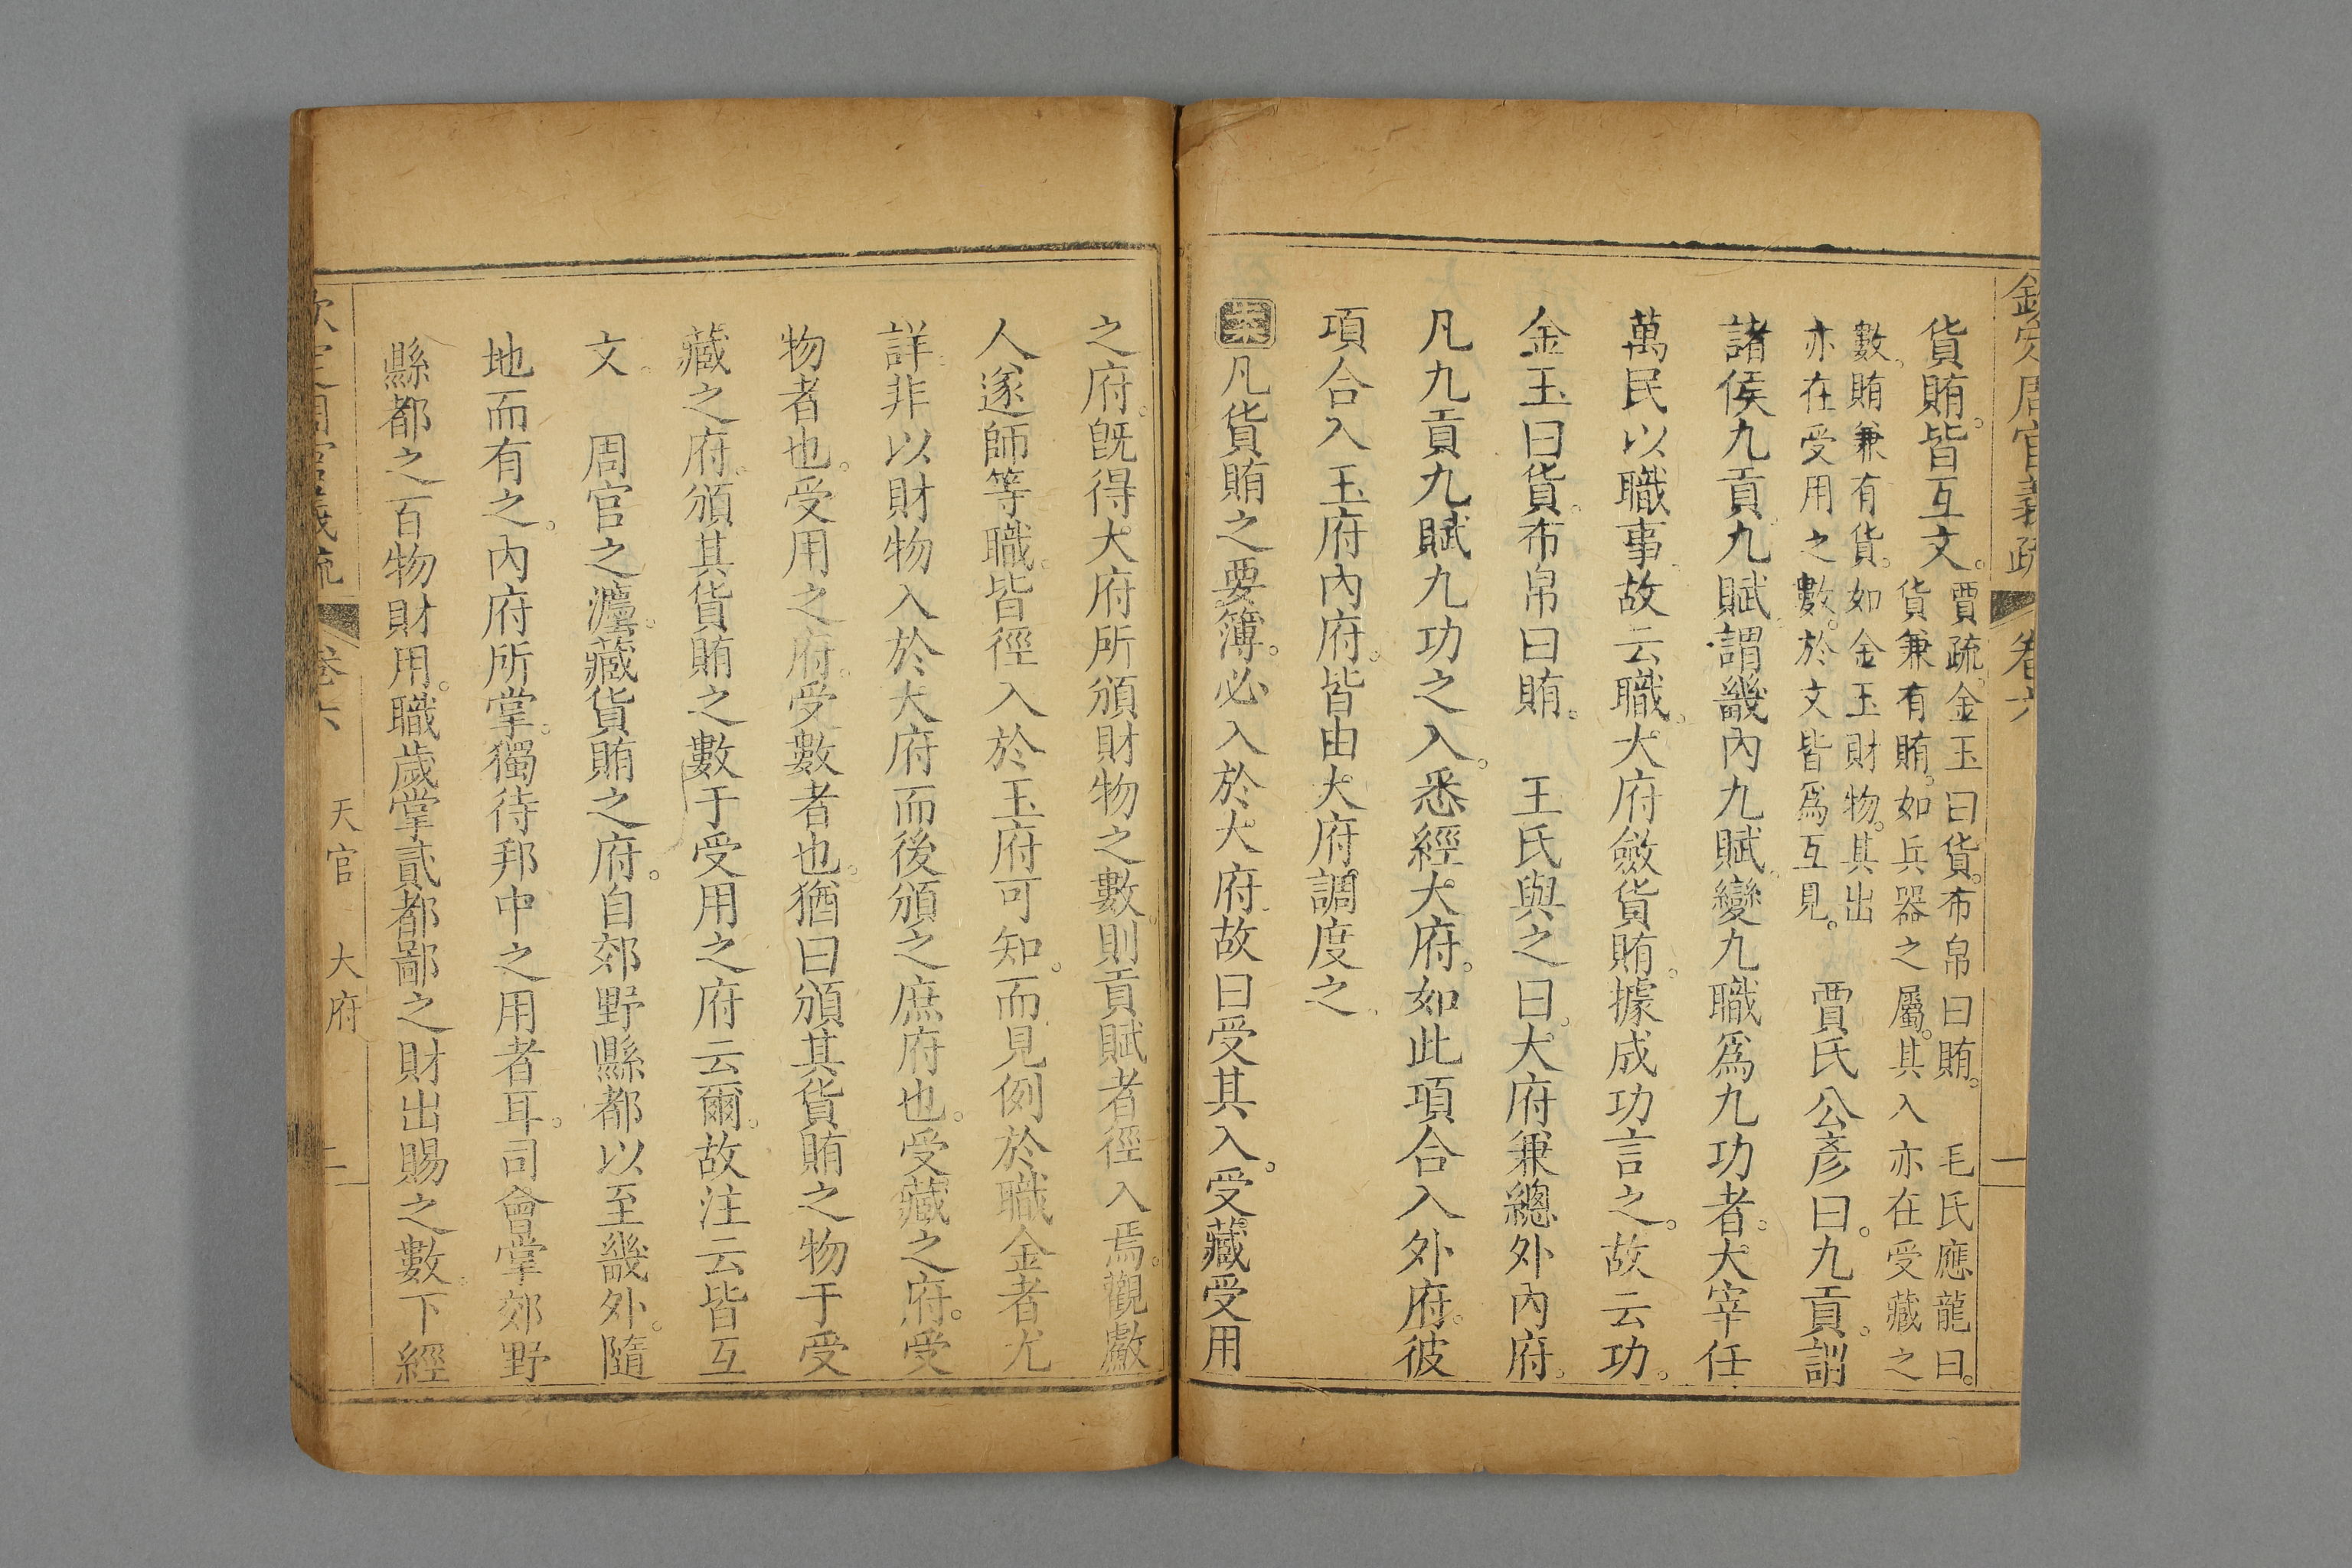 欽定周官義疏 卷六 一
貨賄。皆互文。賈疏。金玉曰貨。布帛曰賄。 毛氏應龍曰。
貨兼有賄。如兵器之屬。其入亦在受藏之
數。賄兼有貨。如金玉財物。其出
亦在受用之數。於文皆爲互見。 賈氏公彥曰。九貢。謂
諸侯九貢。九賦。謂畿內九賦。變九職爲九功者。大宰任
萬民以職事。故云職。大府斂貨賄。據成功言之。故云功。
金玉曰貨。布帛曰賄。 王氏與之曰。大府兼總外內府。
凡九貢九賦九功之入。悉經大府。如此項合入外府。彼
項合入玉府內府。皆由大府調度之
案凡貨賄之要簿。必入於大府。故曰受其入。受藏受用
之府。旣得大府所頒財物之數。則貢賦者徑入焉。觀䱷
人遂師等職。皆徑入於玉府可知。而見例於職金者尤
詳。非以財物入於大府而後頒之庶府也。受藏之府。受
物者也。受用之府。受數者也。猶曰頒其貨賄之物于受
藏之府。頒其貨賄之數于受用之府云爾。故注云皆互
文。 周官之灋。藏貨賄之府。自郊野縣都以至畿外。隨
地而有之。內府所掌。獨待邦中之用者耳。司會掌郊野
縣都之百物財用。職歲掌貳都鄙之財出賜之數。下經
欽定周官義疏 卷六 天官 大府 二